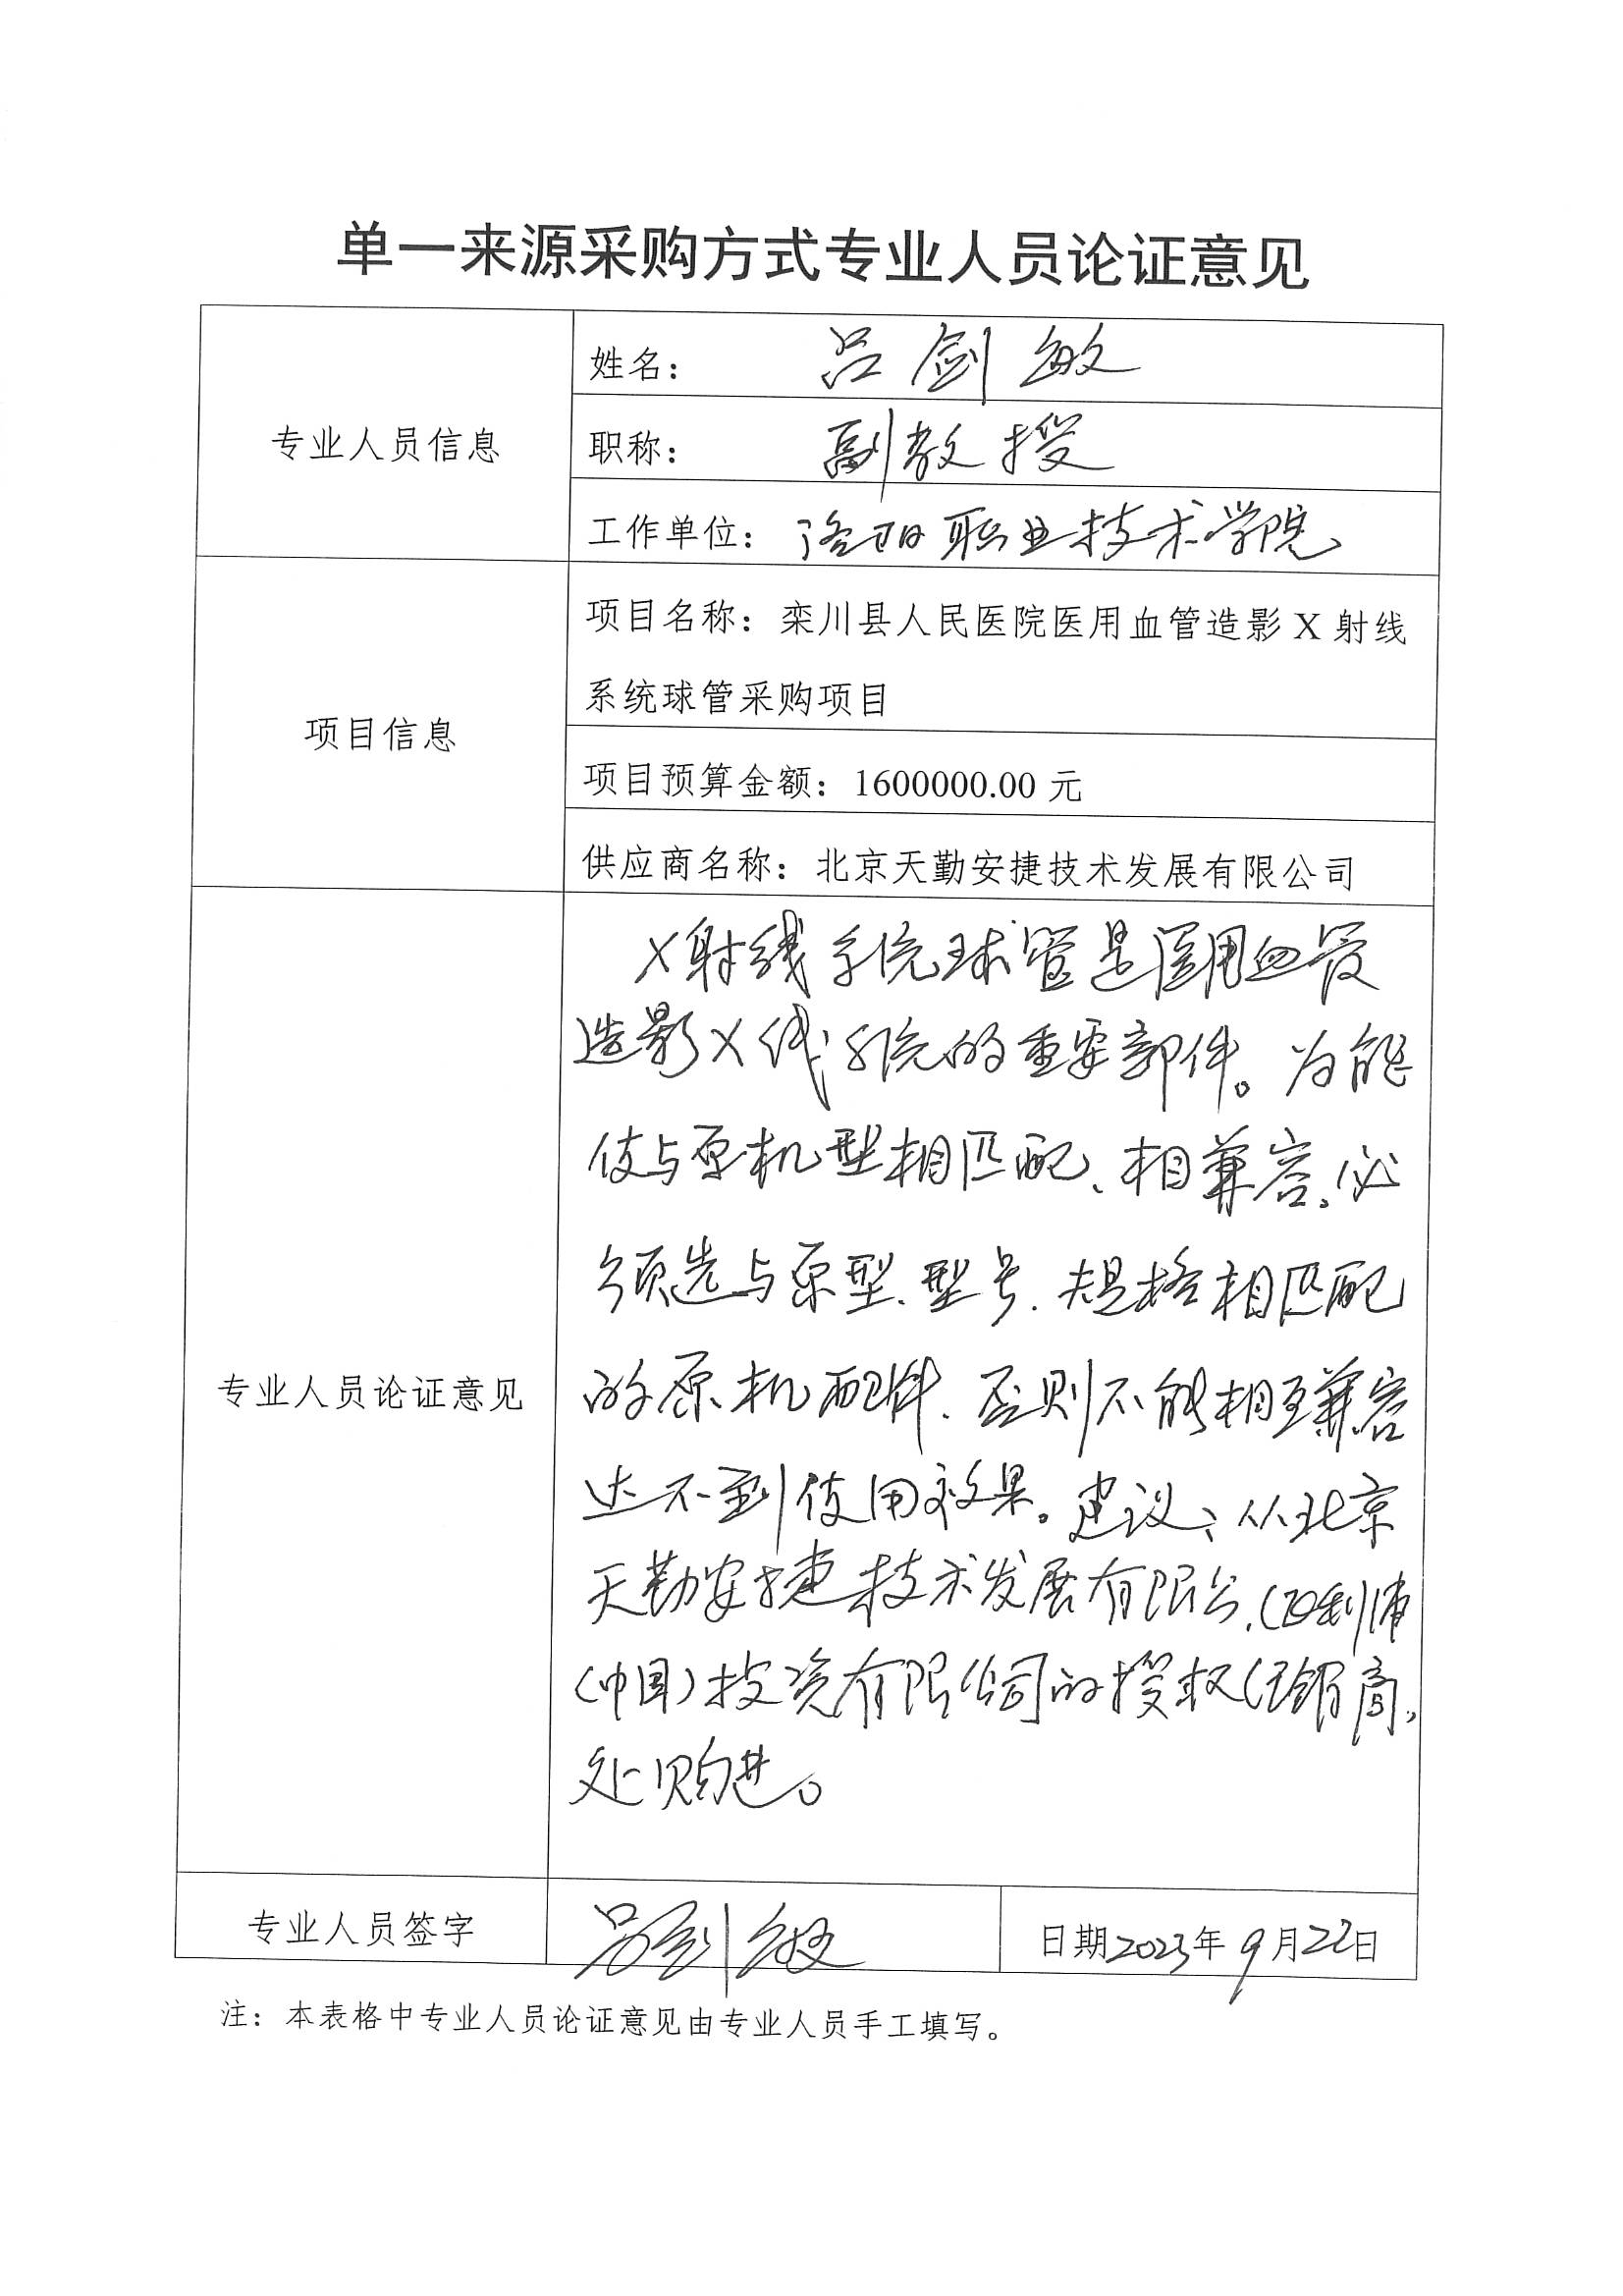 单一来源采购方式专业人员论证意见
专业人员信息
姓名： 吕剑敏
职称： 副教授
工作单位： 洛阳职业技术学院
项目信息
项目名称：栾川县人民医院医用血管造影 X 射线
系统球管采购项目
项目预算金额：1600000.00 元
供应商名称：北京天勤安捷技术发展有限公司
专业人员论证意见
X射线系统球管是医用血管
造影X线系统的重要部件。为能
使与原机型相匹配、相兼容，必
须选与原型、型号、规格相匹配
的原机配件、否则不能相互兼容
达不到使用效果。建议：从北京
天勤安捷技术发展有限公，（西利浦
（中国）投资有限公司的授权经销商，
处购进。
专业人员签字
吕剑敏
日期2023年9月22日
注：本表格中专业人员论证意见由专业人员手工填写。